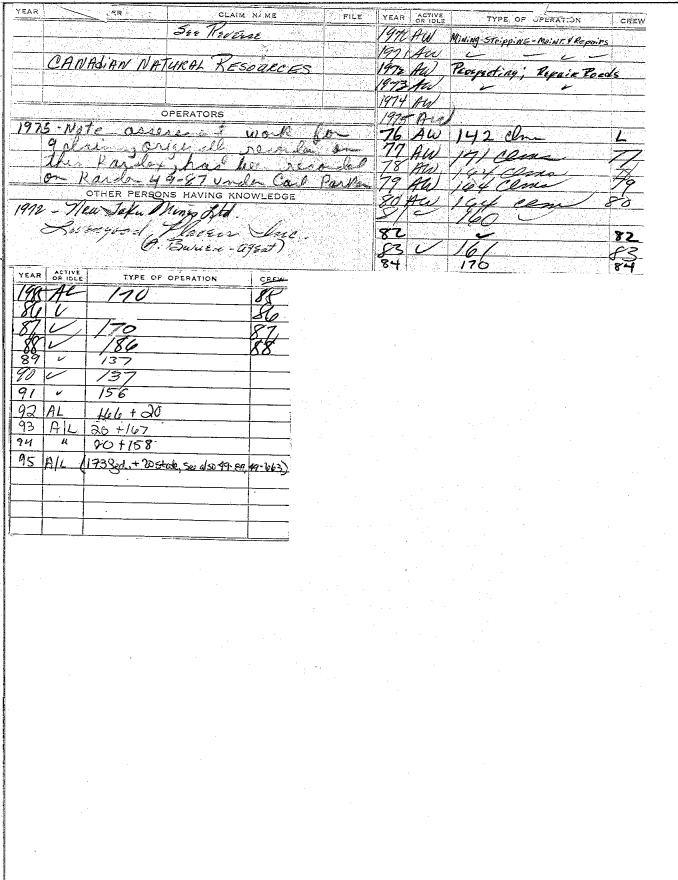 YEAR CLAIM NAME FILE
See Reverse
CANADIAN NATURAL RESOURCES
OPERATORS
1975 - Note assessment work for
9 claims, originally recorded on
this Kardex, has been recorded
on Kardex 49-87 under Carl Parker
OTHER PERSONS HAVING KNOWLEDGE
1972 - New Taku Mines Ltd.
Placer Inc.
YEAR ACTIVE OR IDLE TYPE OF OPERATION CREW
1970 AW Mining-Stripping-Maint. & Repairs
1971 AW ✓ ✓ ✓
1972 AW Prospecting; Repair Roads
1973 AW ✓ ✓
1974 AW
1975 AW
76 AW 142 clms L
77 AW 141 clms 77
78 AW 164 clms
79 AW 164 clms 79
80 AW 164 clms 80
81 ✓ 160
82 ✓ 82
83 ✓ 161 83
84 170 84
YEAR ACTIVE OR IDLE TYPE OF OPERATION CREW
1985 AL 170 85
86 ✓ 86
87 ✓ 170 87
88 ✓ 186 88
89 ✓ 137
90 ✓ 137
91 ✓ 156
92 AL 166 + 20
93 A/L 20 + 167
94 " 20 + 158
95 A/L (173 Fed. + 20 State, See also 49-89, 49-663)